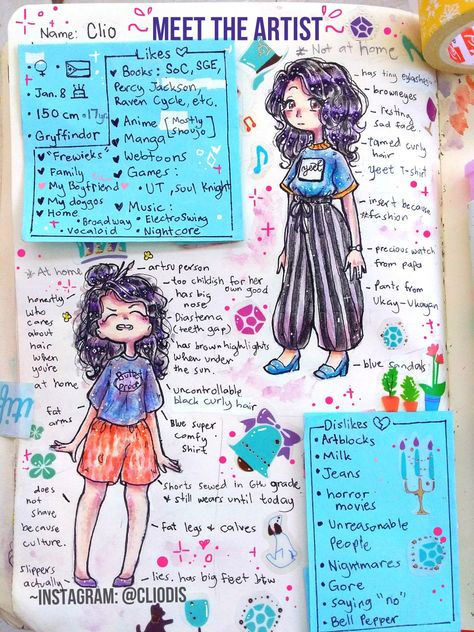 MEET THE ARTIST
Name: Clio
Likes
♥ Books: SoC, SGE,
Percy Jackson,
Raven Cycle, etc.
♥ Anime [Mostly
♥ Manga Shoujo]
♥ Webtoons
♥ Games:
UT, Soul Knight
♥ Music:
• Broadway • ElectroSwing
• Vocaloid • Nightcore
• Jan. 8
• 150 cm • 17yo
• Gryffindor
♥ "Frewieks"
♥ Family
♥ My Boyfriend
♥ My doggos
♥ Home
* Not at home
has tiny eyelashes
browneyes
resting
sad face
Tamed curly
hair
yeet T-shirt
yeet
insert because
#fashion
precious watch
from papa
Pants from
Ukay-Ukayan
blue sandals
* At home
artsu person
too childish for her
own good
has big
nose
Diastema
(teeth gap)
has brown highlights
when under
the sun.
uncontrollable
black curly hair
Blue super
comfy
shirt
shorts sewed in 6th grade
& still wears until today
fat legs & calves
lies. has big feet btw
honestly
who
cares
about
hair
when
you're
at home
fat
arms
does
not
shave
because
culture.
slippers
actually
Dislikes
• Artblocks
• Milk
• Jeans
• horror
movies
• Unreasonable
People
• Nightmares
• Gore
• saying "no"
• Bell Pepper
~INSTAGRAM: @CLIODIS~